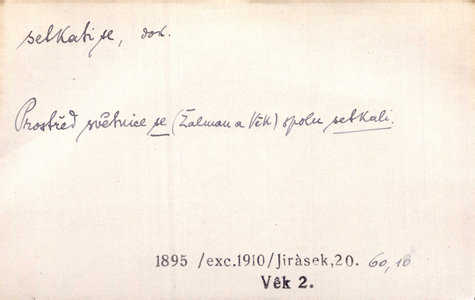 setkati se, dok.
Prostřed světnice se (Žalman a Věk) spolu setkali.
1895 /exc.1910/Jiràsek,20. 60,18
Věk 2.